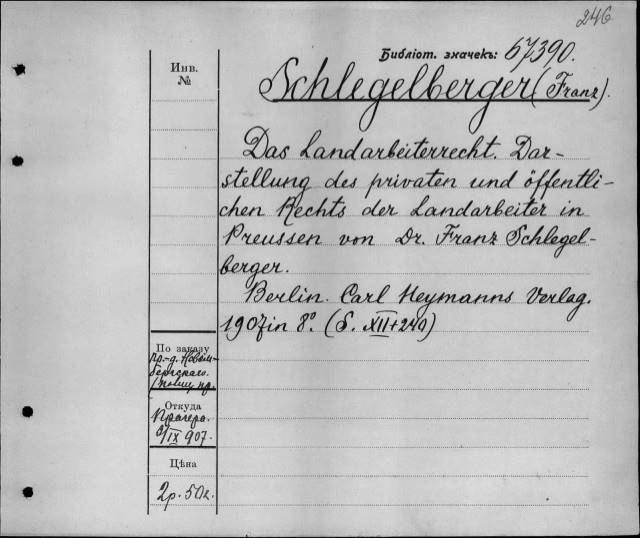 246
Библіот. значекъ: 67390.
Инв.
№
Schlegelberger (Franz).
Das Landarbeiterrecht. Dar-
stellung des privaten und öffentli-
chen Rechts der Landarbeiter in
Preussen von Dr. Franz Schlegel-
berger.
Berlin. Carl Heymanns Verlag.
1907 in 8°. (S. XII+240)
По заказу
пр.-д.
Откуда
Прагера.
/IX 907.
Цѣна
2р. 50к.